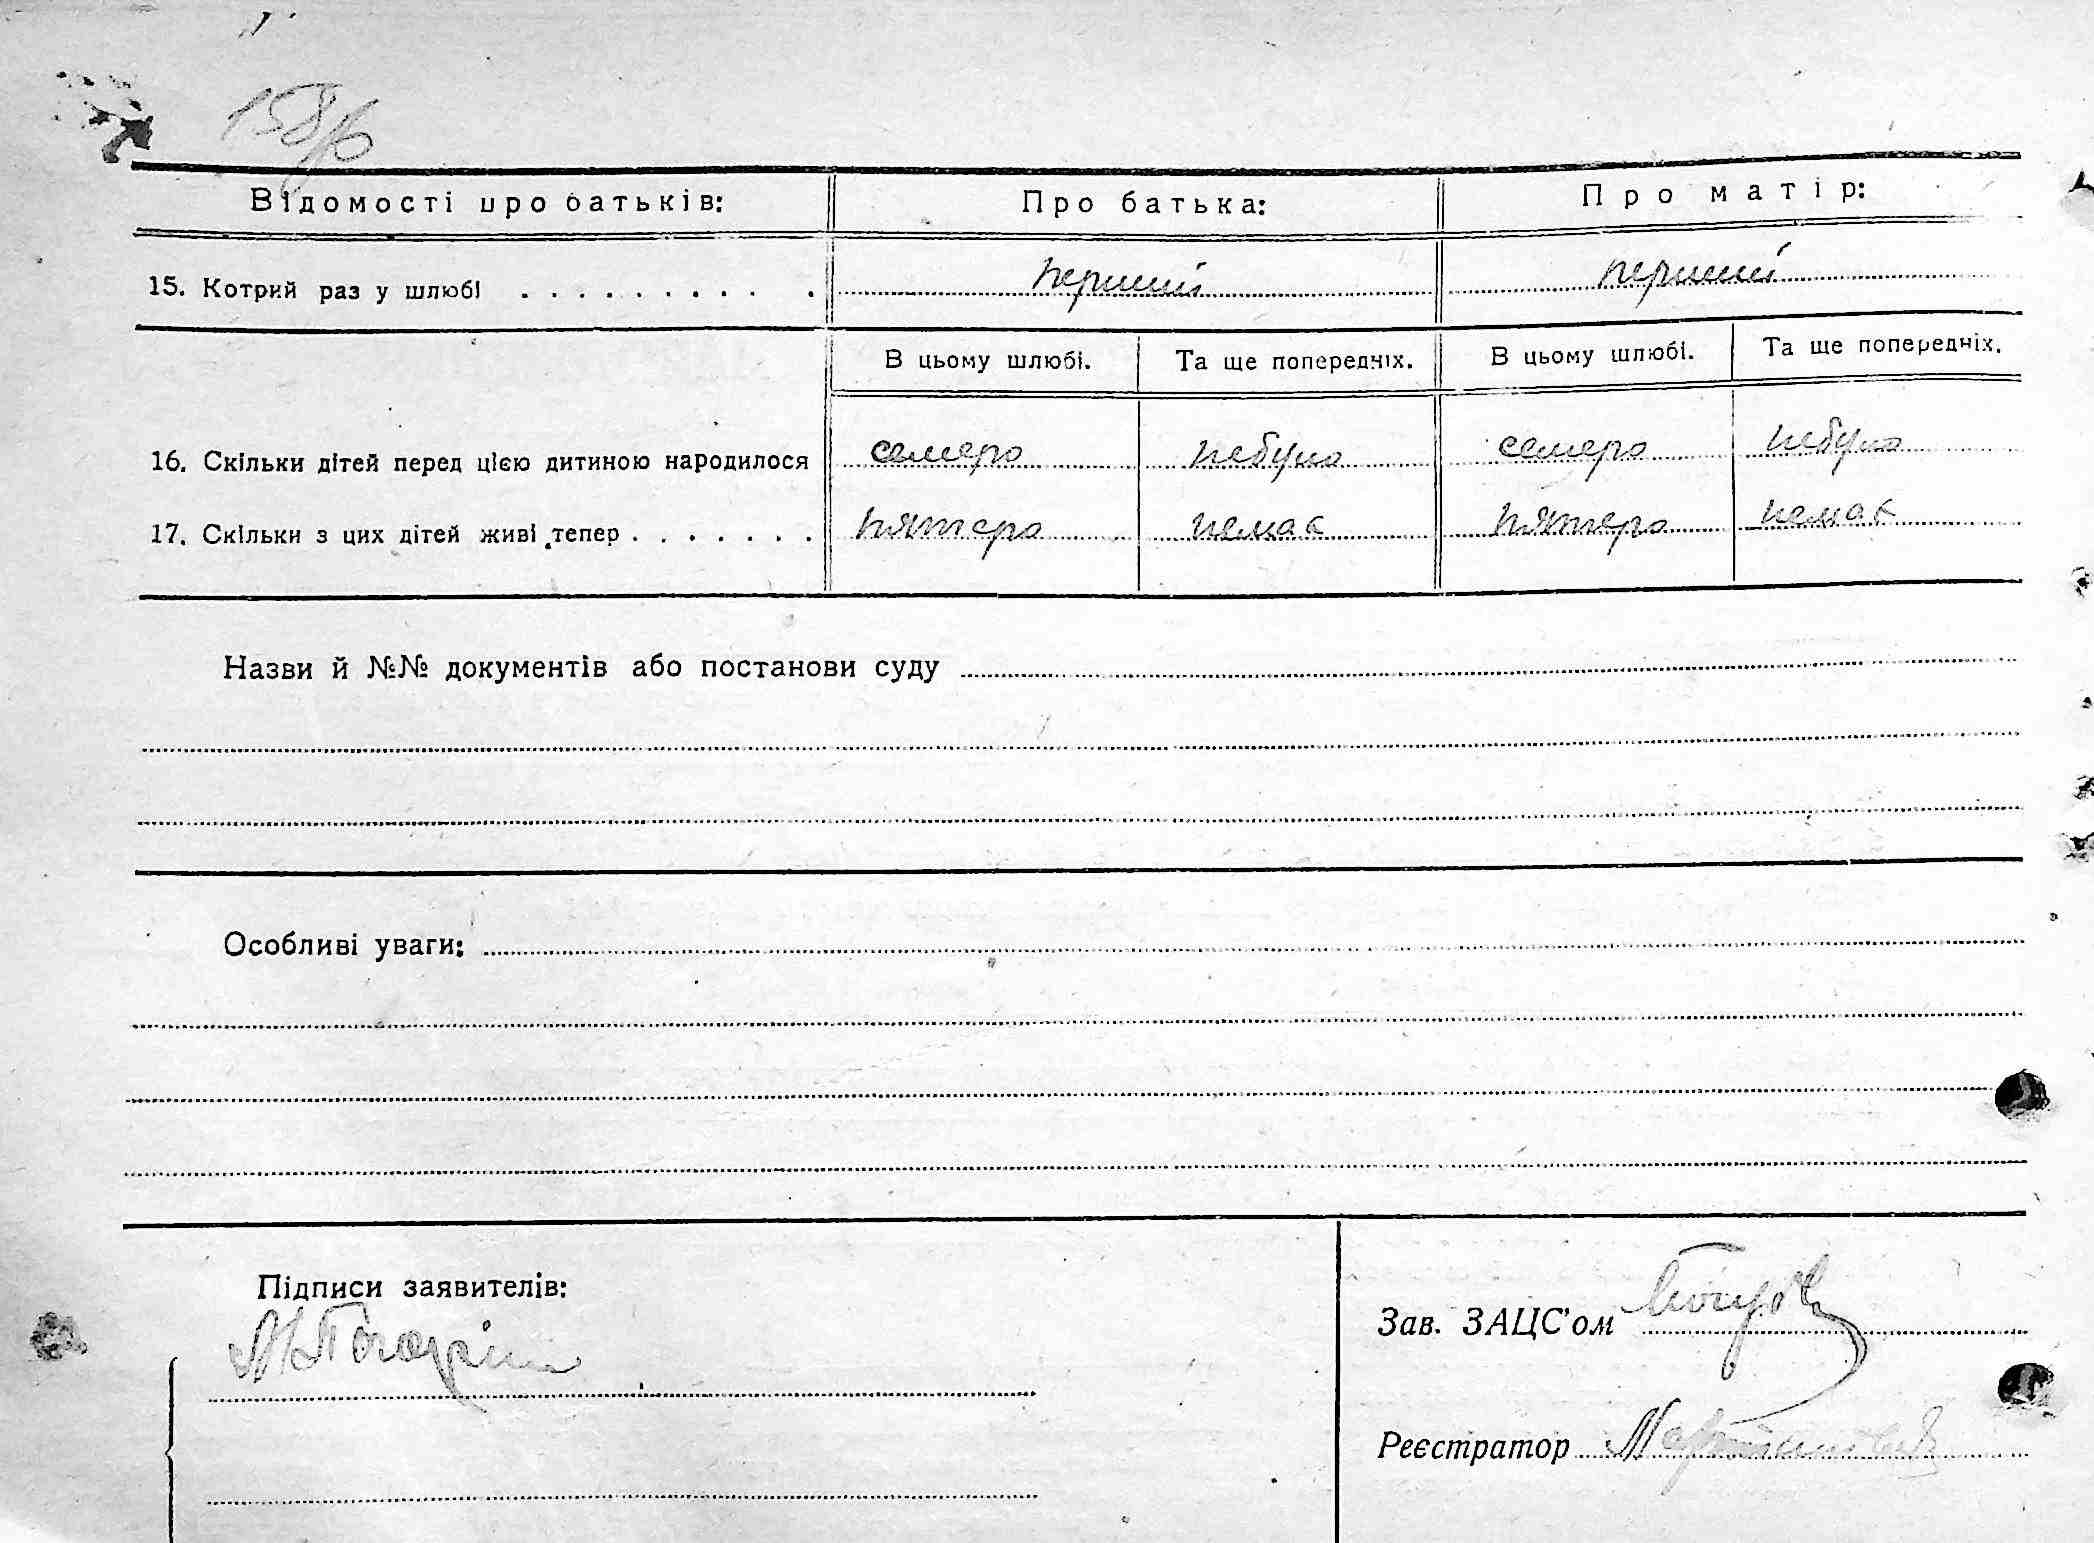 Відомості про батьків: Про батька: Про матір:
15. Котрий раз у шлюбі . . . . . . . . . . перший перший
В цьому шлюбі. Та ще попередніх. В цьому шлюбі. Та ще попередніх.
16. Скільки дітей перед цією дитиною народилося семеро небуло семеро небуло
17. Скільки з цих дітей живі тепер . . . . . . . пятеро немає пятеро немає
Назви й №№ документів або постанови суду
Особливі уваги:
Підписи заявителів:
Зав. ЗАЦС'ом
Реєстратор